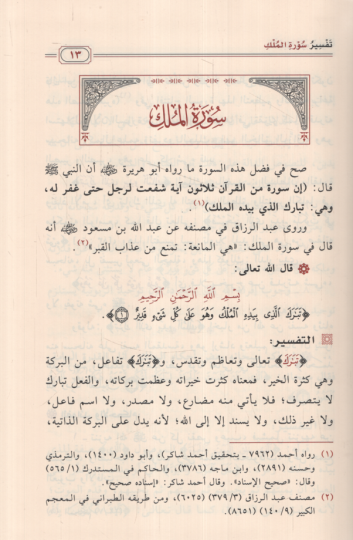 تَفْسِيرُ سُوْرَةِ المُلْكِ
١٣
سُورَةُ المُلْكِ
صح في فضل هذه السورة ما رواه أبو هريرة ﷺ أن النبي ﷺ
قال: (إن سورة من القرآن ثلاثون آية شفعت لرجل حتى غفر له،
وهي: تبارك الذي بيده الملك)(١).
وروى عبد الرزاق في مصنفه عن عبد الله بن مسعود أنه
قال في سورة الملك: «هي المانعة: تمنع من عذاب القبر»(٢).
قال الله تعالى:
بِسْمِ اللَّهِ الرَّحْمَٰنِ الرَّحِيمِ
﴿تَبَٰرَكَ الَّذِى بِيَدِهِ الْمُلْكُ وَهُوَ عَلَىٰ كُلِّ شَىْءٍ قَدِيرٌ ١﴾.
التفسير:
﴿تَبَٰرَكَ﴾ تعالى وتعاظم وتقدس، و﴿تَبَٰرَكَ﴾ تفاعل، من البركة
وهي كثرة الخير، فمعناه كثرت خيراته وعظمت بركاته، والفعل تبارك
لا يتصرف؛ فلا يأتي منه مضارع، ولا مصدر، ولا اسم فاعل،
ولا غير ذلك، ولا يسند إلا إلى الله؛ لأنه يدل على البركة الذاتية،
(١) رواه أحمد (٧٩٦٢ ـ بتحقيق أحمد شاكر)، وأبو داود (١٤٠٠)، والترمذي
وحسنه (٢٨٩١)، وابن ماجه (٣٧٨٦)، والحاكم في المستدرك (١/٥٦٥)
وقال: «صحيح الإسناد». وقال أحمد شاكر: «إسناده صحيح».
(٢) مصنف عبد الرزاق (٣/٣٧٩) (٦٠٢٥)، ومن طريقه الطبراني في المعجم
الكبير (٩/١٤٠) (٨٦٥١).